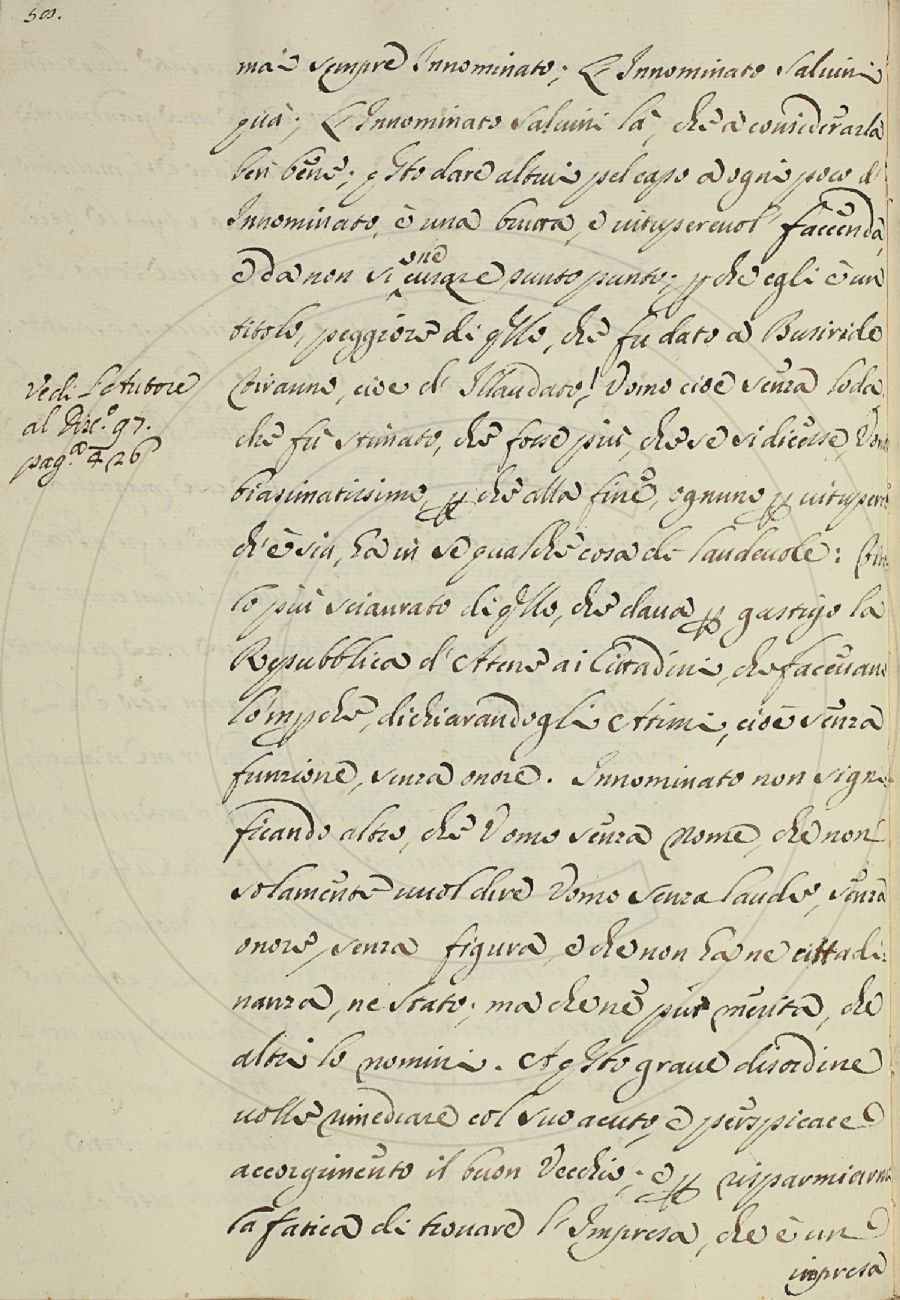 508.
mai sempre Innominato; L'Innominato Saluini
quà; L'Innominato Saluini là, che à considerarla
ben bene; qsto dare altrui pel capo a ogni poco d'
Innominato, è una brutta, e uituperevol' faccenda,
e da non si curare one punto punto; p che egli è un
titolo, peggiore di qllo, che fu dato a Busiride
Tiranno, cioe d' Illaudato! Uomo cioè senza loda
che fù stimato, che fosse più, che se si dicesse, Uomo
biasimatissimo, p che alla fine, ognuno p uitupero
ch'è sia, hà in se qualche cosa di laudeuole:
lo più sciaurato di qllo, che daua p gastigo la
Repubblica d'Atene ai Cittadini, che faceuano
lo mpchè, dichiarandogli Atimi, cioè senza
funzione, senza onore. Innominato non signi
ficando altro, che Uomo senza nome, che non
solamente uuol dire Uomo senza laude, senza
onore, senza figura, e che non hà ne cittadi:
nanza, ne stato; ma che nè pur merita, che
altri lo nomini. A qsto graue disordine
uolle rimediare col suo acuto, e perspicace
accorgimento il buon Vecchio; e p risparmiarui
la fatica di trouare l'Impresa, che è un
impresa
Vedi L'Autore
al Disc.o 97.
pag.a 426